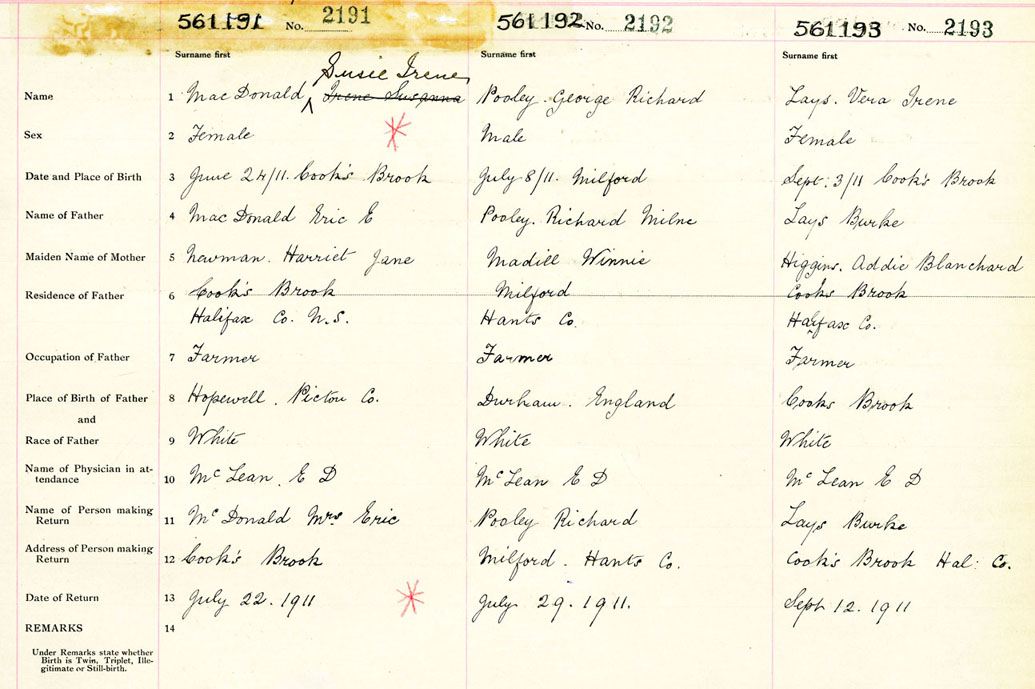 561191 No. 2191 561192 No. 2192 561193 No. 2193
Surname first Surname first Surname first
Susie Irene
Name 1 MacDonald ^ Irene Susanna Pooley. George Richard Lays. Vera Irene
Sex 2 Female Male Female
Date and Place of Birth 3 June 24/11. Cook's Brook July 8/11. Milford Sept: 3/11 Cook's Brook
Name of Father 4 MacDonald Eric E Pooley. Richard Milne Lays Burke
Maiden Name of Mother 5 Newman. Harriet Jane Madill Winnie Higgins. Addie Blanchard
Residence of Father 6 Cook's Brook Milford Cooks Brook
Halifax Co. N.S. Hants Co. Halifax Co.
Occupation of Father 7 Farmer Farmer Farmer
Place of Birth of Father 8 Hopewell. Pictou Co. Durham. England Cooks Brook
and
Race of Father 9 White White White
Name of Physician in at-
tendance 10 McLean. E D McLean E D McLean E D
Name of Person making
Return 11 McDonald Mrs Eric Pooley Richard Lays Burke
Address of Person making
Return 12 Cook's Brook Milford. Hants Co. Cook's Brook Hal: Co.
Date of Return 13 July 22. 1911 July 29. 1911. Sept 12. 1911
REMARKS 14
Under Remarks state whether
Birth is Twin, Triplet, Ille-
gitimate or Still-birth.